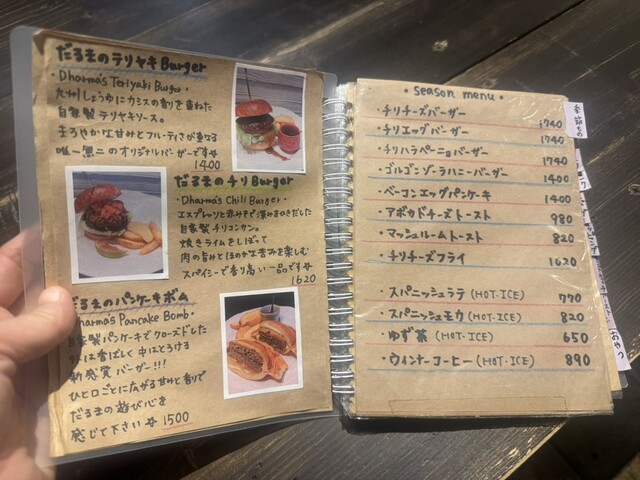 だるまのテリヤキBurger
・Dharma's Teriyaki Burger・
九州しょうゆにカシスの香りを重ねた
自家製テリヤキソース。
まろやかな甘みとフルーティさが重なる
唯一無二のオリジナルバーガーです
1400
だるまのチリBurger
・Dharma's Chili Burger・
エスプレッソと赤みそで深みをひきだした
自家製チリコンカン。
焼きライムをしぼって
肉の旨みとほのかな苦みを楽しむ
スパイシーで香り高い一品です
1620
だるまのパンケーキボム
Dharma's Pancake Bomb・
自家製パンケーキでクローズドした
外は香ばしく中はとろける
新感覚バーガー!!!
ひと口ごとに広がる甘みと香りで
だるまの遊び心を
感じて下さい 1500
・season menu・
・チリチーズバーガー 1740
・チリエッグバーガー 1740
・チリハラペーニョバーガー 1740
・ゴルゴンゾーラハニーバーガー 1400
・ベーコンエッグパンケーキ 1400
・アボカドチーズトースト 980
・マッシュルームトースト 820
・チリチーズフライ 1620
・スパニッシュラテ (HOT・ICE) 770
・スパニッシュモカ (HOT・ICE) 820
・ゆず茶 (HOT・ICE) 650
・ウィンナーコーヒー (HOT・ICE) 890
季節もの
おやつ